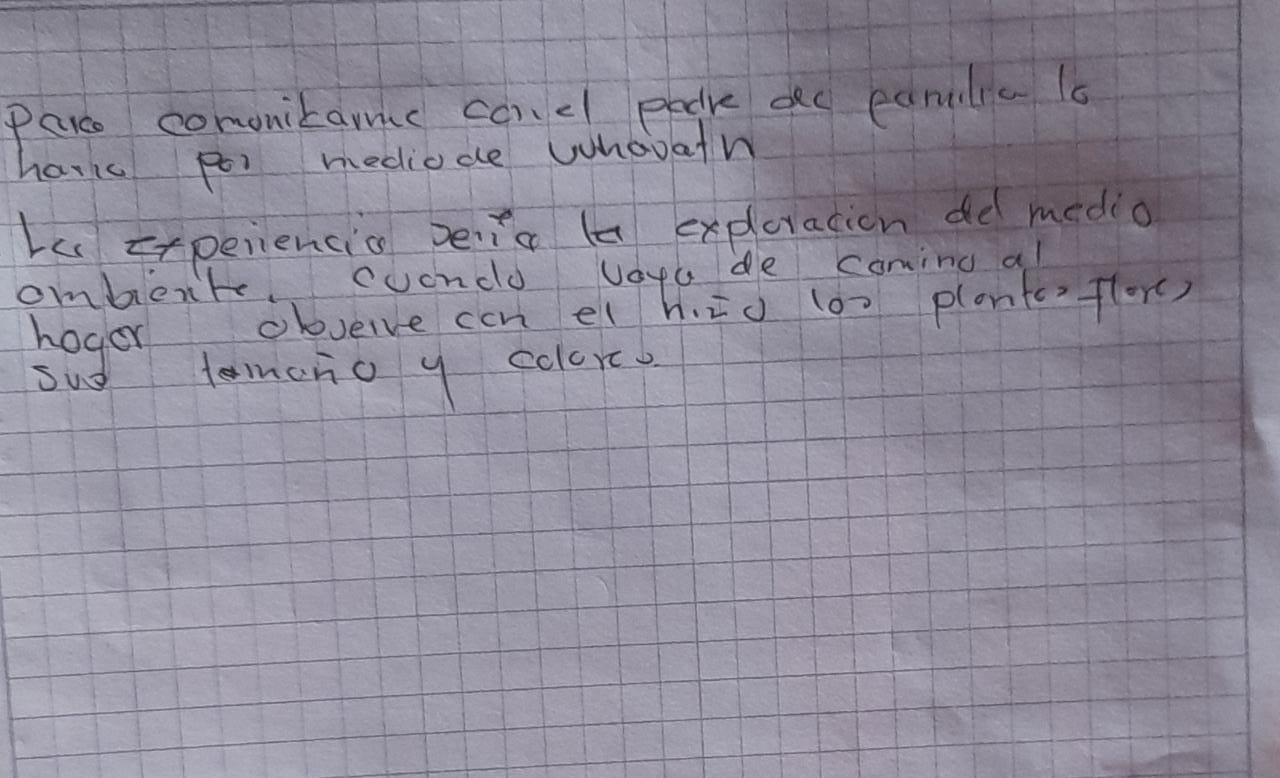 Para comonikarme con el padre de familia lo
haria por medio de whavatn
La Experiencia seria la exploracion del medio
ambiente, cuondo vaya de camino al
hogar observe con el niño las plantas flores
sus tamaño y colores.